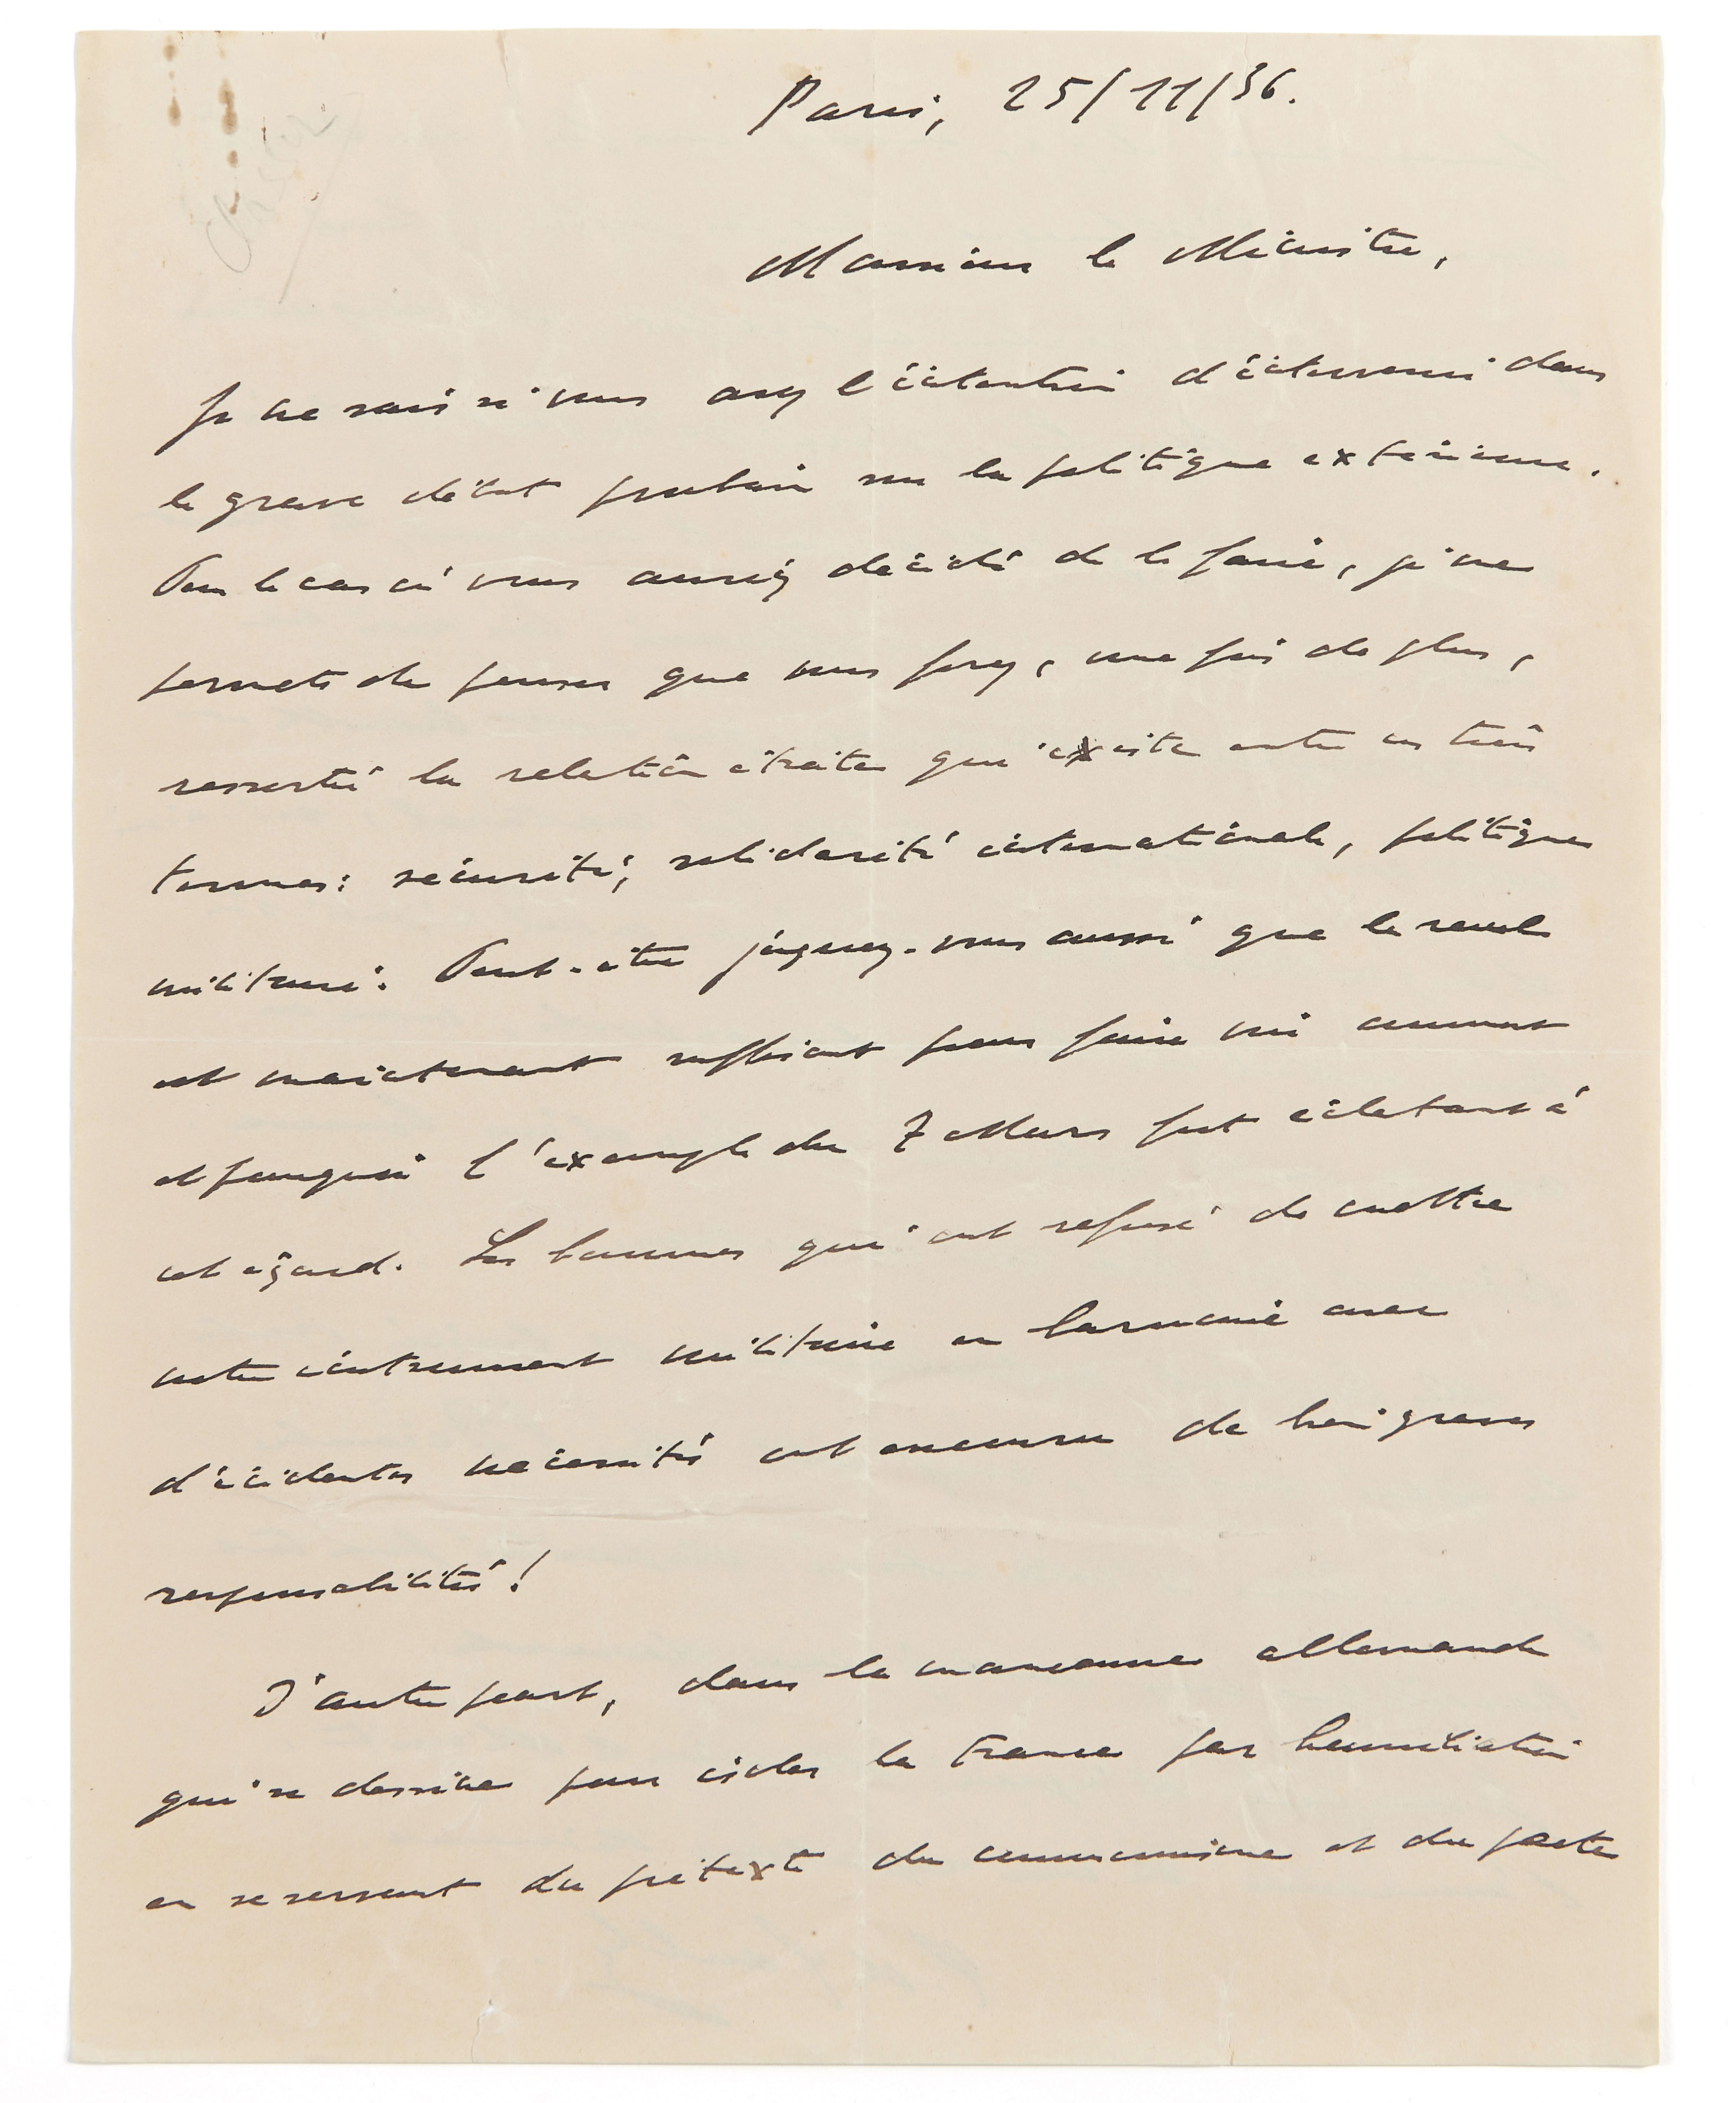 Paris, 25/11/36.
Monsieur le Ministre,
Je ne sais si vous avez l'intention d'intervenir dans
le grave débat prochain sur la politique extérieure.
Pour le cas où vous auriez décidé de le faire, je me
permets de penser que vous ferez, une fois de plus,
ressortir la relation étroite qui existe entre ces trois
termes: sécurité, solidarité internationale, politique
militaire. Peut-être jugerez-vous aussi que le recul
est maintenant suffisant pour faire voir comment
et pourquoi l'exemple du 7 Mars fut éclatant à
cet égard. Les hommes qui ont refusé de mettre
notre instrument militaire en harmonie avec
d'évidentes nécessités ont encouru de bien graves
responsabilités!
D'autre part, dans la manœuvre allemande
qui se dessine pour isoler la France par humiliation
en se servant du prétexte du communisme et du pacte